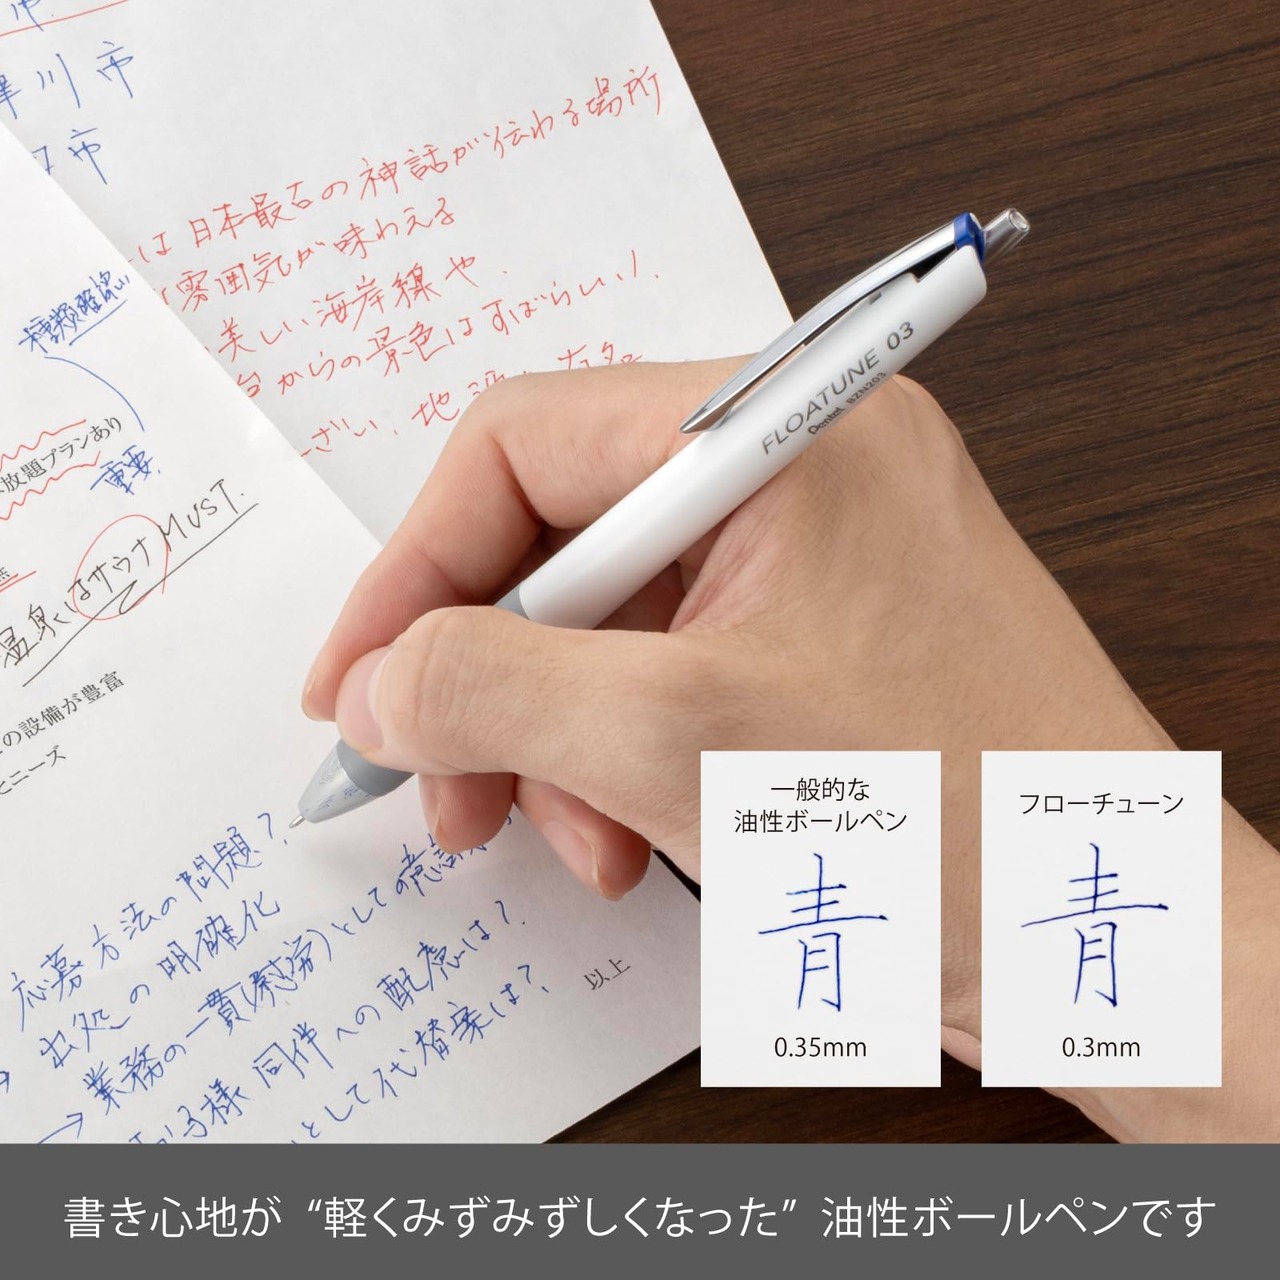 津川市
市
は日本最古の神話が伝わる場所
雰囲気が味わえる
美しい海岸線や
台からの景色はすばらしい!
ざい、地
種類確認
放題プランあり
重要
温泉にはサウナMUST.
の設備が豊富
とニーズ
応募方法の問題?
出処の明確化
→業務の一貫(慰労)としての意識
お子様同伴への配慮は?
として代替案は?
以上
FLOATUNE 03
Pentel BZN203
一般的な
油性ボールペン
青
0.35mm
フローチューン
青
0.3mm
書き心地が“軽くみずみずしくなった”油性ボールペンです